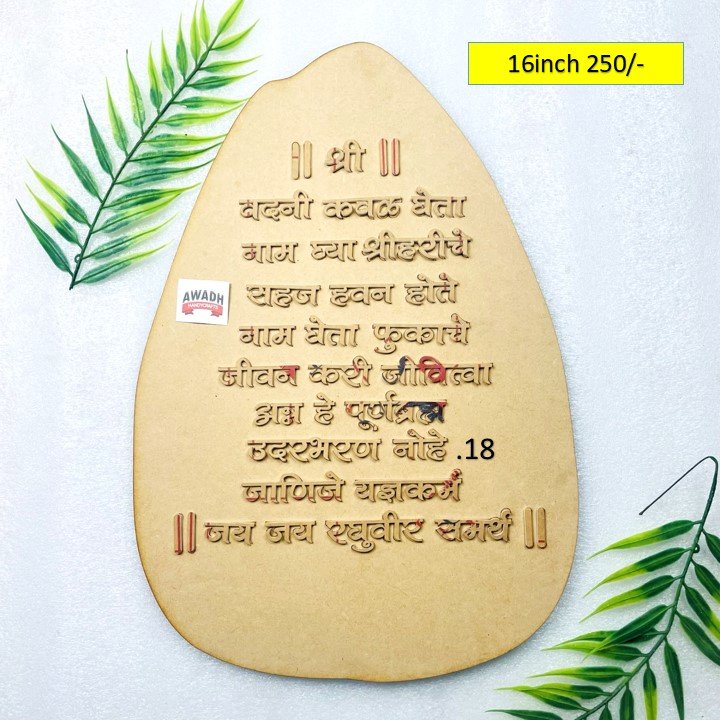 16inch 250/-
|| श्री ||
वदनी कवळ घेता
नाम घ्या श्रीहरीचे
सहज हवन होते
नाम घेता फुकाचे
जीवन करी जीवित्वा
अन्न हे पूर्णब्रह्म
उदरभरण नोहे .18
जाणिजे यज्ञकर्म
|| जय जय रघुवीर समर्थ ||
AWADH
HANDYCRAFTS